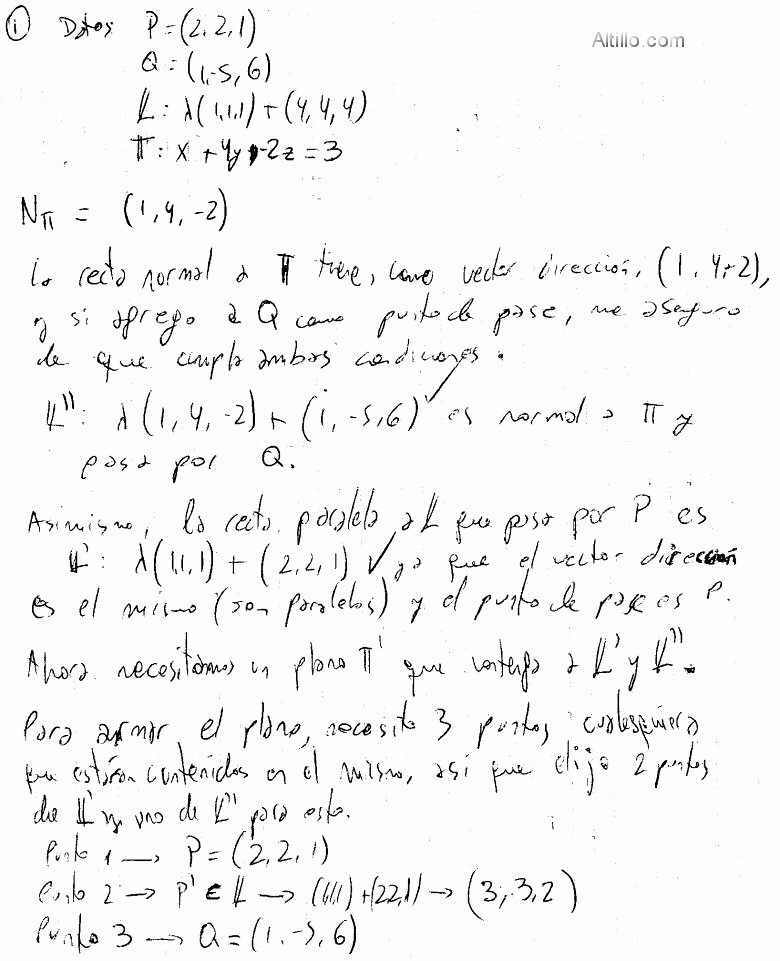 ① Datos P=(2,2,1)
Altillo.com
Q=(1,-5,6)
𝕃: λ(1,1,1)+(4,4,4)
Π: x+4y-2z=3
N_Π = (1,4,-2)
La recta normal a Π tiene, como vector dirección, (1,4,-2),
y si agrego a Q como punto de pase, me aseguro
de que cumpla ambas condiciones.
𝕃'': λ(1,4,-2)+(1,-5,6) ✓ es normal a Π y
pasa por Q.
Asimismo, la recta paralela a 𝕃 que pasa por P es
𝕃': λ(1,1,1)+(2,2,1) ✓ ya que el vector dirección
es el mismo (son paralelos) y el punto de pase es P.
Ahora necesitamos un plano Π' que contenga a 𝕃' y 𝕃''.
Para armar el plano, necesito 3 puntos cualesquiera
que estarán contenidos en el mismo, así que elijo 2 puntos
de 𝕃' y uno de 𝕃'' para esto.
Punto 1 → P=(2,2,1)
Punto 2 → P' ∈ 𝕃 → (1,1,1)+(2,2,1) → (3,3,2)
Punto 3 → Q=(1,-5,6)